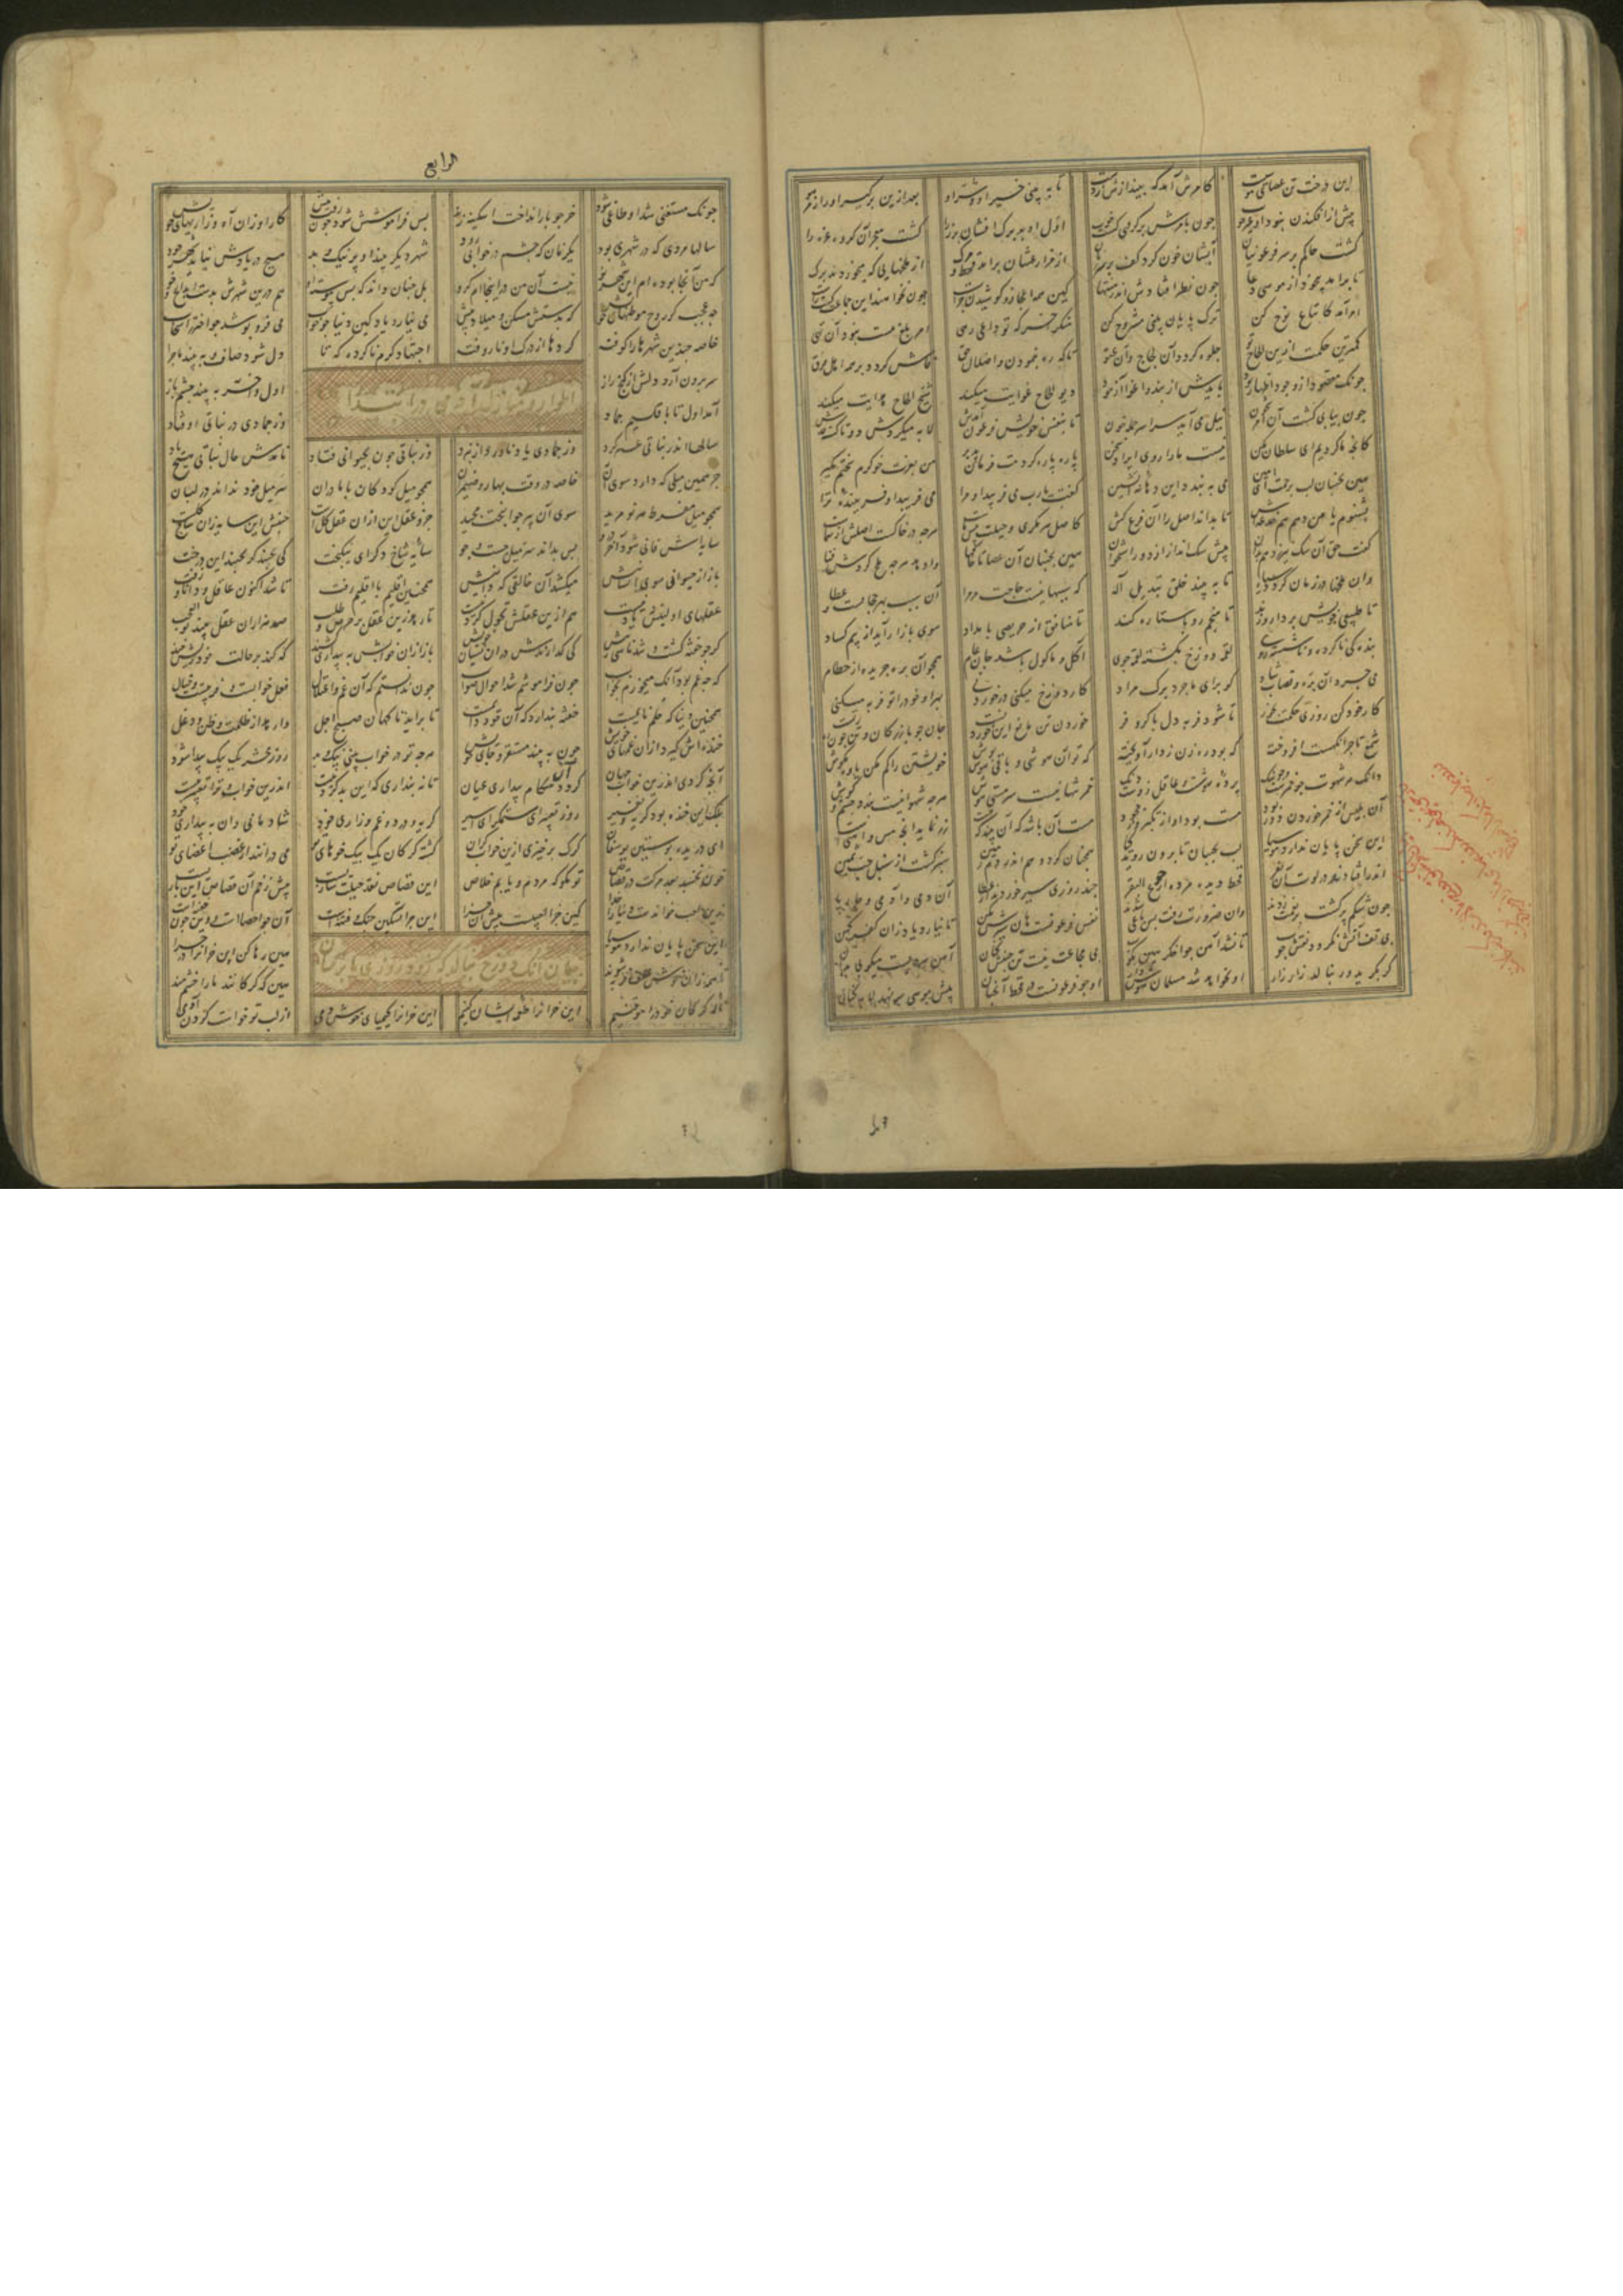 این درخت تن عصای موسیست کامرش آمد که بیندازش ز دست تا به بینی خیر او و شر او بعد ازین برگیر او را ز امر هو
پیش از افکندن نبود او غیر چوب چون بامرش برگرفتی گشت خوب اول او بد برگ افشان بره را گشت معجز آن گروه غره را
گشت حاکم بر سر فرعونیان آبشان خون کرد و کف بر سر زنان از مزارعشان برآمد قحط و مرگ از ملخهایی که میخوردند برگ
تا برآمد بیخود از موسی دعا چون نظر افتادش اندر منتها کین همه اعجاز و کوشیدن چراست چون نخواهند این جماعت گشت راست
امر آمد کاتباع نوح کن ترک پایان بینی مشروح کن که تو داعی رهی امر بلغ هست نبود آن تهی
کمترین حکمت ازین الحاح تو جلوه گردد آن لجاج و آن عتو تا که ره نمودن و اضلال حق فاش گردد بر همه اهل فرق
چونک مقصود از وجود اظهار بود بایدش از پند و اغوا آزمود دیو الحاح غوایت میکند شیخ الحاح هدایت میکند
چون پیاپی گشت آن امر شجون نیل می آمد سراسر جمله خون تا بنفس خویش فرعون آمدش لابه میکردش دو تا گشته قدش
کانچه ما کردیم ای سلطان مکن نیست ما را روی ایراد سخن پاره پاره گردمت فرمان پذیر من بعزت خوگرم سختم مگیر
هین بجنبان لب برحمت ای امین تا ببندد این دهانه آتشین گفت یا رب می فریبد او مرا می فریبد او فریبنده ترا
بشنوم یا من دهم هم خدعه اش تا بداند اصل را آن فرع کش کاصل هر مکری و حیلت پیش ماست هرچه در خاکست اصلش از سماست
گفت حق آن سگ نیرزد هم بدان پیش سگ انداز از دور استخوان هین بجنبان آن عصا تا خاکها وا دهد هرچه ملخ کردش فنا
وان ملخها در زمان گردد سیاه تا به بیند خلق تبدیل اله که سببها نیست حاجت مر مرا آن سبب بهر حجابست و غطا
تا طبیعی خویش بر دارو زند تا منجم رو باستاره کند تا منافق از حریصی بامداد سوی بازار آید از بیم کساد
بندگی ناکرده و ناشسته روی لقمه دوزخ بگشته لقمه جوی آکل و ماکول باشد جان عام همچو آن بره چریده از حطام
می چرد آن بره و قصاب شاد کو برای ما چرد برگ مراد کار دوزخ میکنی در خوردنی بهر او خود را تو فربه میکنی
کار خود کن روزی حکمت بچر تا شود فربه دل با کر و فر خوردن تن مانع این خوردنست جان چو بازرگان و تن چون رهزنست
شمع تاجر آنگهست افروخته که بود ره زن ز دار آویخته که تو آن هوشی و باقی هوش پوش خویشتن را گم مکن یاوه مکوش
دانک هر شهوت چو خمرست و چو بنگ پرده هوشست و عاقل زوست دنگ خمر تنها نیست سرمستی هوش هرچه شهوانیست بندد چشم و گوش
آن بلیس از خمر خوردن دور بود مست بود او از تکبر وز جحود مست آن باشد که آن بیند که نیست زر نماید آنچه مس و آهنیست
این سخن پایان ندارد موسیا لب بجنبان تا برون روید گیا همچنان کرد و هم اندر دم زمین سبز گشت از سنبل و حب ثمین
اندر افتادند در لوت آن نفر قحط دیده مرده از جوع البقر چند روزی سیر خوردند از عطا آن دمی و آدمی و چارپا
چون شکم پر گشت بر نعمت زدند وان ضرورت رفت پس طاغی شدند نفس فرعونیست هان سیرش مکن تا نیارد یاد از آن کفر کهن
بی تف آتش نگردد نفس خوب تا نشد آهن چو اخگر هین مکوب بی مجاعت نیست تن جنبش کنان آهن سردیست میکوبی بدان
گر بگرید ور بنالد زار زار او نخواهد شد مسلمان هوش دار او چو فرعونست در قحط آنچنان پیش موسی سر نهد لابه کنان
الرابع
چونک مستغنی شد او طاغی شود خر چو بار انداخت اسکیزه زند پس فراموشش شود چون رفت پیش کار او زان آه و زاریهای خویش
سالها مردی که در شهری بود یک زمان که چشم در خوابی رود شهر دیگر بیند او پر نیک و بد هیچ در یادش نیاید شهر خود
که من آنجا بوده ام این شهر نو نیست آن من در اینجا ام گرو بل چنان داند که پیوسته او هم درین شهرش بدست ابداع و خو
چه عجب گر روح موطنهای خویش که بدستش مسکن و میلاد پیش می نیارد یاد کین دنیا چو خواب می فرو پوشد چو اختر را سحاب
خاصه چندین شهرها را کوفته گردها از درک او ناروفته اجتهاد گرم ناکرده که تا دل شود صاف و به بیند ماجرا
سر برون آرد دلش از بخش راز اول و آخر به بیند چشم باز
اطوار و منازل آدمی در ابتدا
آمد اول تا باقلیم جماد وز جمادی در نباتی اوفتاد
سالها اندر نباتی عمر کرد وز جمادی یاد ناورد از نبرد وز نباتی چون بحیوانی فتاد نامدش حال نباتی هیچ یاد
جز همین میلی که دارد سوی آن خاصه در وقت بهار و ضیمران همچو میل کودکان با مادران سر میل خود نداند در لبان
همچو میل مفرط هر نو مرید سوی آن پیر جوان بخت مجید جزو عقل این از آن عقل کلست جنبش این سایه زان شاخ گلست
سایه اش فانی شود آخر درو پس بداند سر میل و جست و جو سایه شاخ دگر ای نیکبخت کی بجنبد گر نجنبد این درخت
باز از حیوان سوی انسانیش میکشد آن خالقی که دانیش همچنین اقلیم تا اقلیم رفت تا شد اکنون عاقل و دانا و زفت
عقلهای اولینش یاد نیست هم ازین عقلش تحول کردنیست تا رهد زین عقل پر حرص و طلب صد هزاران عقل بیند بوالعجب
گر چو خفته گشت و شد ناسی ز پیش کی گذارندش در آن نسیان خویش باز از آن خوابش به بیداری کشند که کند بر حالت خود ریش خند
که چه غم بود آنک میخوردم بخواب چون فراموشم شد احوال صواب چون ندانستم که آن غم و اعتلال فعل خوابست و فریبست و خیال
همچنین دنیا که حلم نایمست خفته پندارد که آن خود دایمست تا برآید ناگهان صبح اجل وا رهد از ظلمت و ظن و دغل
خنده اش گیرد از آن غمهای خویش چون به بیند مستقر و جای خویش هرچه تو در خواب بینی نیک و بد روز محشر یک بیک پیدا شود
آنچ کردی اندرین خواب جهان گرددت هنگام بیداری عیان تا نپنداری که این بد کردنیست اندرین خواب و ترا تعبیر نیست
بلک این خنده بود گریه و نفیر روز تعبیر ای ستمگر بر اسیر گریه و درد و غم و زاری خود شادمانی دان به بیداری خود
ای دریده پوستین یوسفان گرگ برخیزی ازین خواب گران گشته گرگان یک بیک خوهای تو می درانند از غضب اعضای تو
خون نخسبد بعد مرگت در قصاص تو مگو که مردم و یابم خلاص این قصاص نقد حیلت سازیست پیش زخم آن قصاص این بازیست
زین لعب خواندست دنیا را خدا کین جزا لعبست پیش آن جزا این جزا تسکین جنگ و فتنه است آن چو اخصا است و این چون ختنه است
بیان آنک دوزخ نیالد که
این سخن پایان ندارد موسیا هین رها کن این خران را در گیا
تا همه زان خوش علف فربه شوند هین که گرگانند ما را خشم مند
ناله گرگان خود را موقنیم این خران را طعمه ایشان کنیم این خران را کیمیای خوش دمی از لب تو خواست کردن آدمی